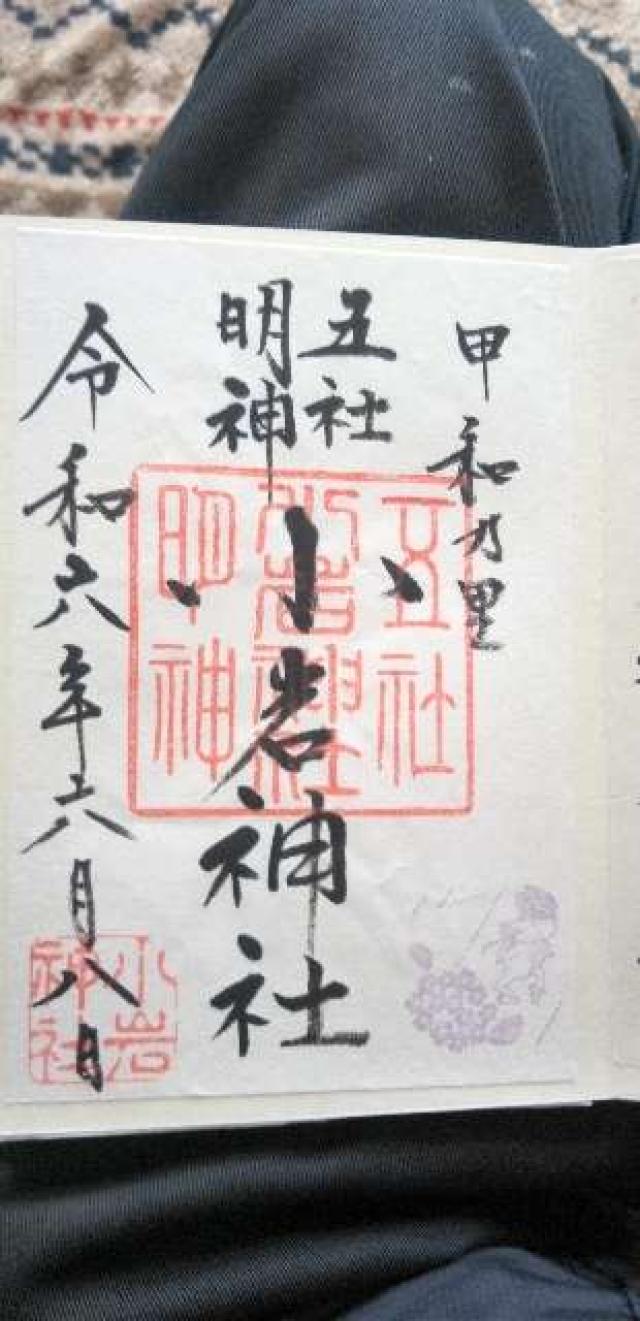 甲和乃里
五社
明神
小岩神社
令和六年六月八日
五社
小岩神社
明神
小岩
神社